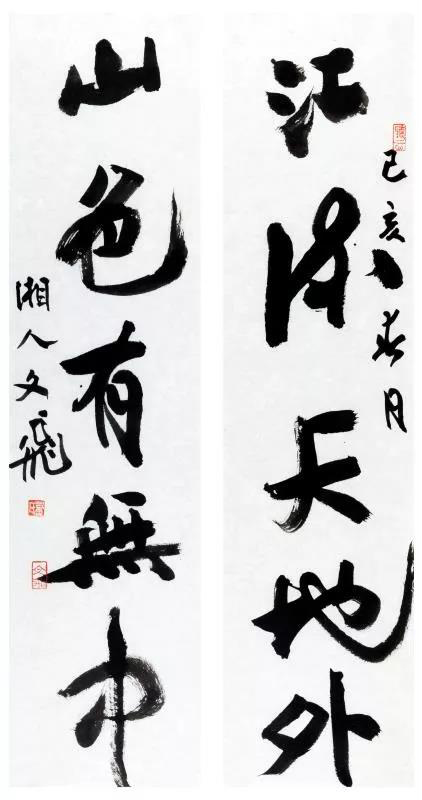 江流天地外
己亥春月
山色有無中
湘人文飛